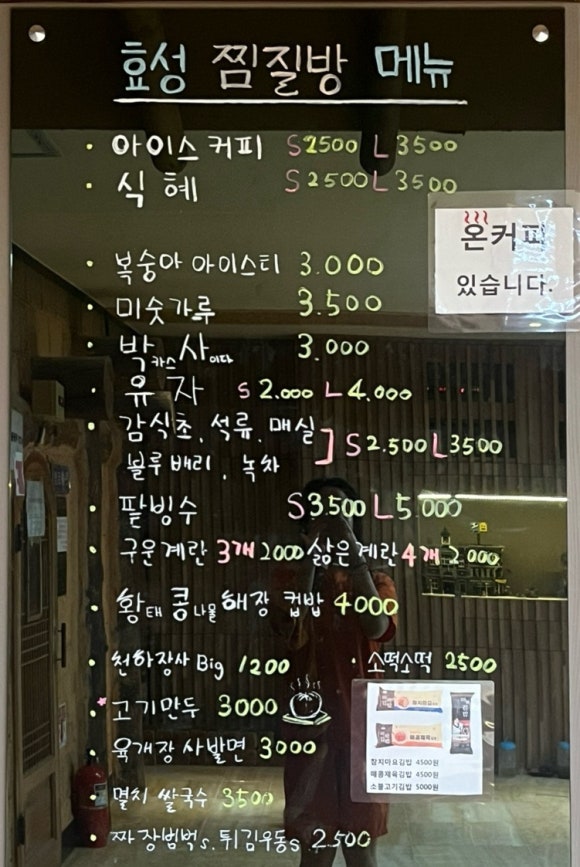 효성 찜질방 메뉴
· 아이스커피 S 2500 L 3500
· 식혜 S 2500 L 3500
온커피
있습니다.
· 복숭아 아이스티 3.000
· 미숫가루 3.500
· 박카스사이다 3.000
· 유자 S 2.000 L 4.000
· 감식초, 석류, 매실
블루베리, 녹차 ] S 2.500 L 3500
· 팥빙수 S 3.500 L 5.000
· 구운계란 3개 2000 삶은계란 4개 2.000
· 황태콩나물해장 컵밥 4000
· 천하장사 Big 1200 · 소떡소떡 2500
· 고기만두 3000
· 육개장 사발면 3000
참치마요김밥 4500원
매콤제육김밥 4500원
소불고기김밥 5000원
· 멸치 쌀국수 3500
· 짜장범벅s. 튀김우동s 2.500